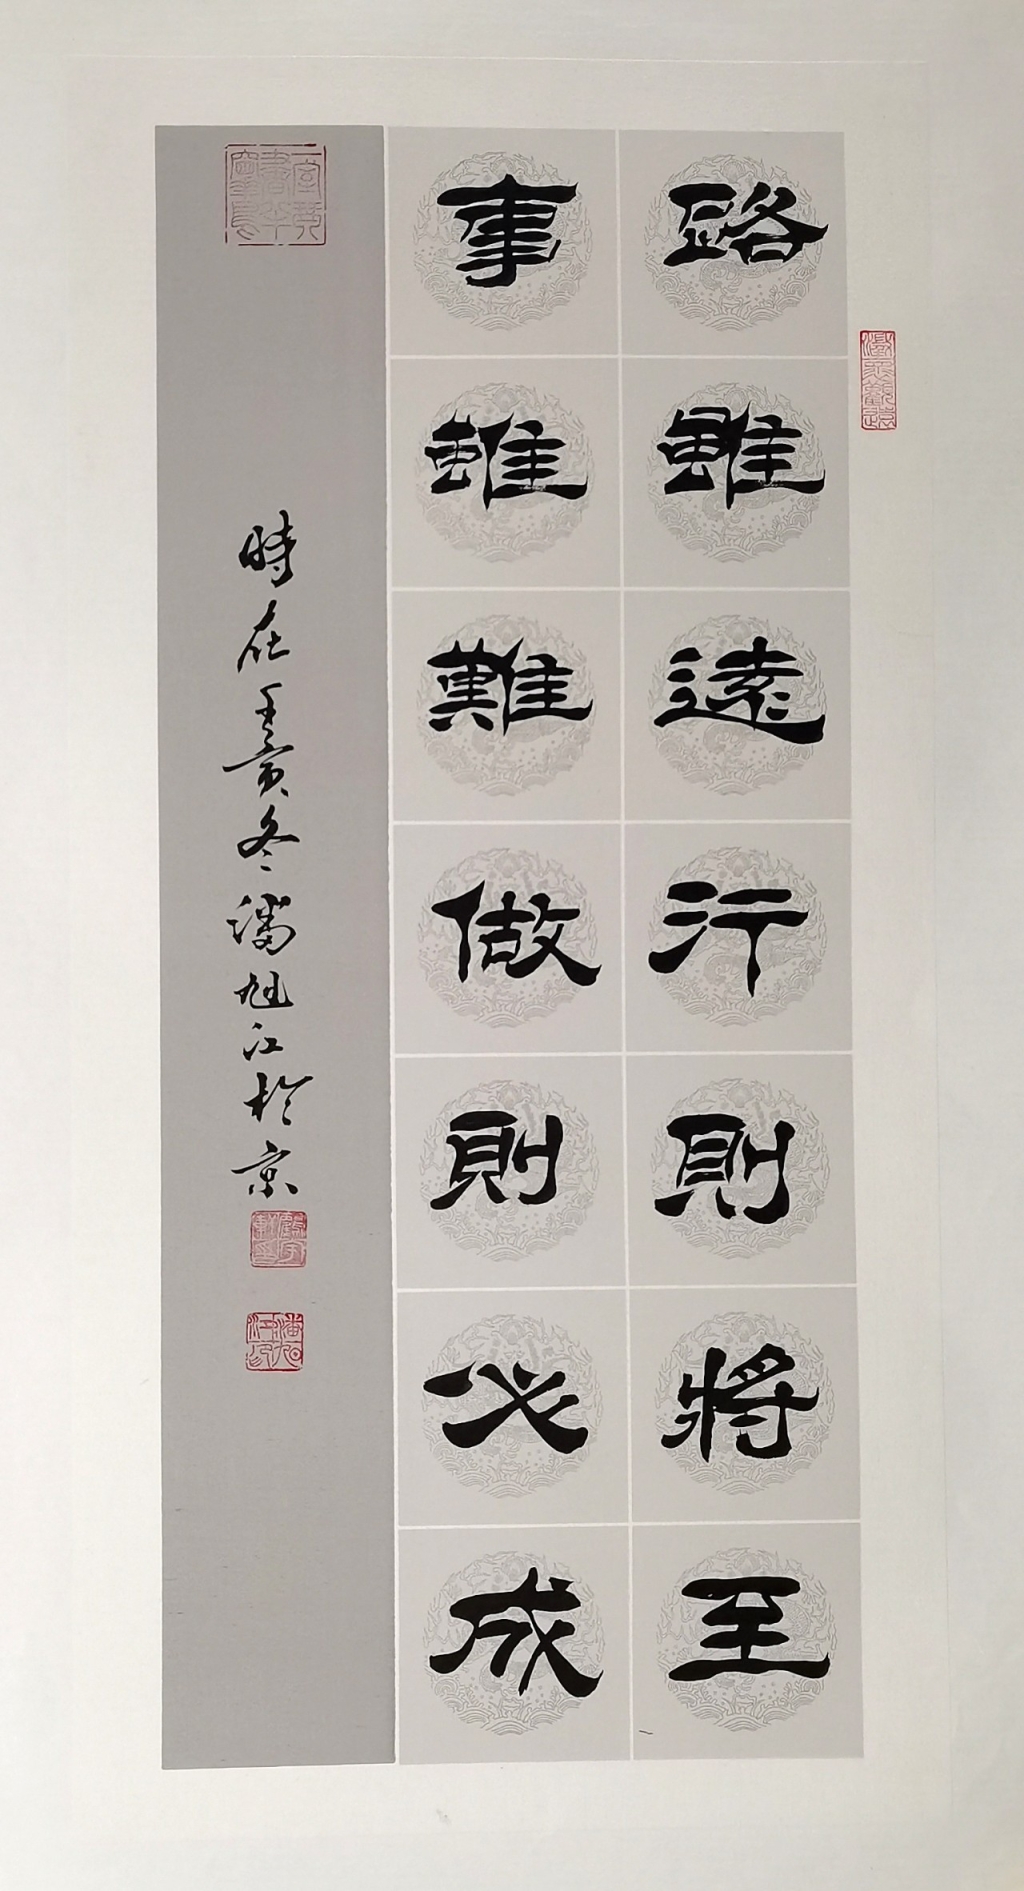 路雖遠行則將至
事雖難做則必成
時在壬寅冬潘旭江於京
潘旭江印